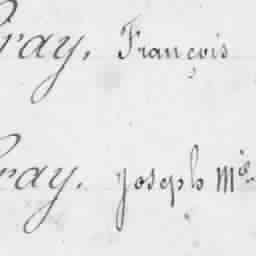 Gray, François
Gray. Joseph Mie